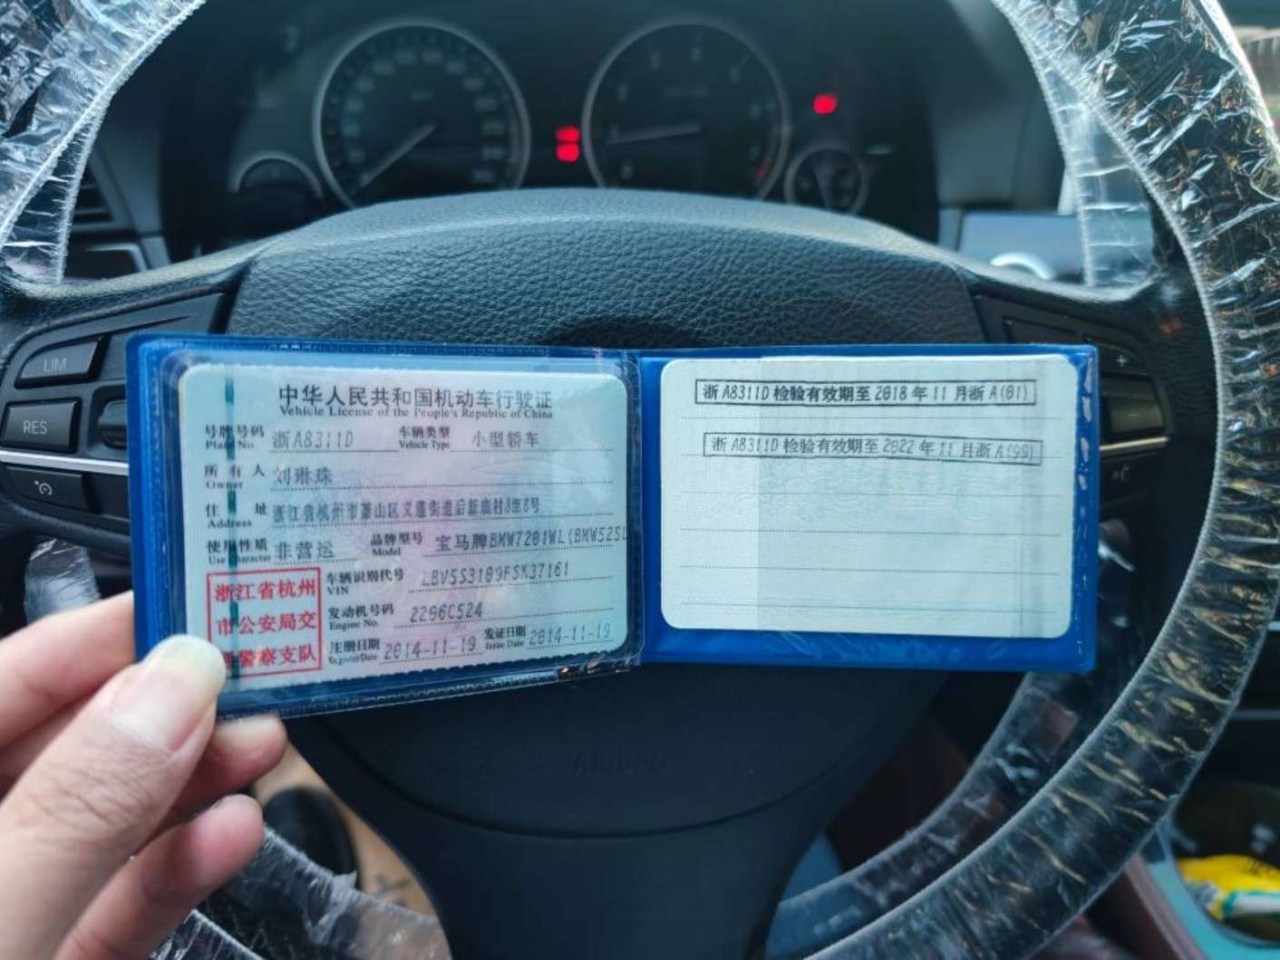 LIM
RES
中华人民共和国机动车行驶证
Vehicle License of the People's Republic of China
号牌号码 浙A8311D 车辆类型 小型轿车
Plate No. Vehicle Type
所有人 刘琳珠
Owner
住址 浙江省杭州市萧山区义蓬街道后新庙村8组8号
Address
使用性质 非营运 品牌型号 宝马牌BMW7201WL(BMW525L
Use Character Model
浙江省杭州 车辆识别代号 LBV5S3109FSK37161
VIN
市公安局交 发动机号码 2206C524
Engine No.
警察支队 注册日期 2014-11-19 发证日期 2014-11-19
Register Date Issue Date
浙A8311D 检验有效期至 2018 年 11 月浙 A(01)
浙A8311D 检验有效期至 2022 年 11 月浙 A(99)